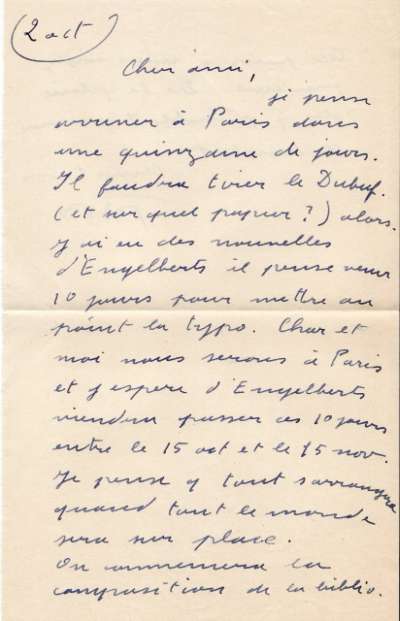 (2 oct)
Cher ami,
je pense
arriver à Paris dans
une quinzaine de jours.
Il faudra tirer le Dubuf.
(et sur quel papier?) alors.
J'ai eu des nouvelles
d'Engelberts il pense venir
10 jours pour mettre au
point la typo. Char et
moi nous serons à Paris
et j'espere q Engelberts
viendra passer ces 10 jours
entre le 15 oct et le 15 nov.
Je pense q tout s'arrangera
quand tout le monde
sera sur place.
On commencera la
composition de la biblio.